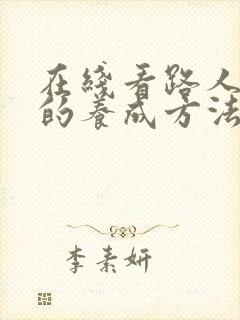 在线看路人
的养成方法
李素妍